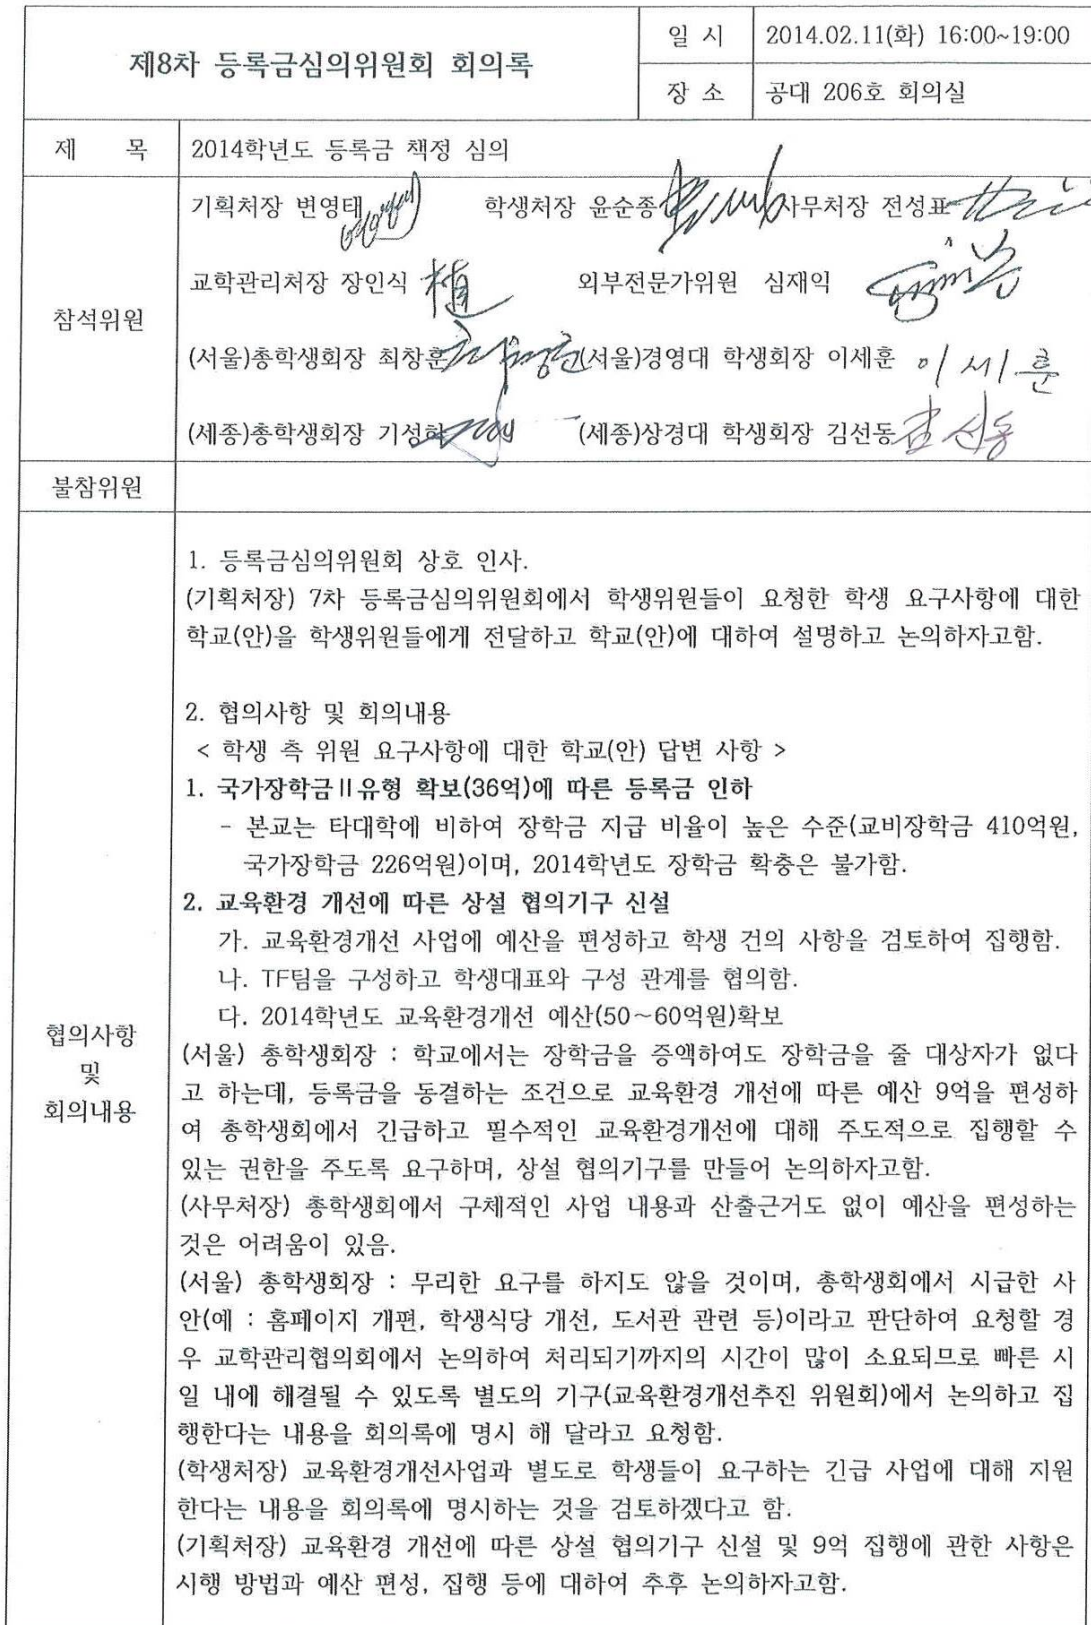 제8차 등록금심의위원회 회의록
일 시 2014.02.11(화) 16:00~19:00
장 소 공대 206호 회의실
제 목 2014학년도 등록금 책정 심의
참석위원
기획처장 변영태 학생처장 윤순종 사무처장 전성표
교학관리처장 장인식 외부전문가위원 심재익
(서울)총학생회장 최창훈 (서울)경영대 학생회장 이세훈 이세훈
(세종)총학생회장 기성하 (세종)상경대 학생회장 김선동 김선동
불참위원
협의사항
및
회의내용
1. 등록금심의위원회 상호 인사.
(기획처장) 7차 등록금심의위원회에서 학생위원들이 요청한 학생 요구사항에 대한
학교(안)을 학생위원들에게 전달하고 학교(안)에 대하여 설명하고 논의하자고함.
2. 협의사항 및 회의내용
< 학생 측 위원 요구사항에 대한 학교(안) 답변 사항 >
1. 국가장학금Ⅱ유형 확보(36억)에 따른 등록금 인하
- 본교는 타대학에 비하여 장학금 지급 비율이 높은 수준(교비장학금 410억원,
국가장학금 226억원)이며, 2014학년도 장학금 확충은 불가함.
2. 교육환경 개선에 따른 상설 협의기구 신설
가. 교육환경개선 사업에 예산을 편성하고 학생 건의 사항을 검토하여 집행함.
나. TF팀을 구성하고 학생대표와 구성 관계를 협의함.
다. 2014학년도 교육환경개선 예산(50~60억원)확보
(서울) 총학생회장 : 학교에서는 장학금을 증액하여도 장학금을 줄 대상자가 없다
고 하는데, 등록금을 동결하는 조건으로 교육환경 개선에 따른 예산 9억을 편성하
여 총학생회에서 긴급하고 필수적인 교육환경개선에 대해 주도적으로 집행할 수
있는 권한을 주도록 요구하며, 상설 협의기구를 만들어 논의하자고함.
(사무처장) 총학생회에서 구체적인 사업 내용과 산출근거도 없이 예산을 편성하는
것은 어려움이 있음.
(서울) 총학생회장 : 무리한 요구를 하지도 않을 것이며, 총학생회에서 시급한 사
안(예 : 홈페이지 개편, 학생식당 개선, 도서관 관련 등)이라고 판단하여 요청할 경
우 교학관리협의회에서 논의하여 처리되기까지의 시간이 많이 소요되므로 빠른 시
일 내에 해결될 수 있도록 별도의 기구(교육환경개선추진 위원회)에서 논의하고 집
행한다는 내용을 회의록에 명시 해 달라고 요청함.
(학생처장) 교육환경개선사업과 별도로 학생들이 요구하는 긴급 사업에 대해 지원
한다는 내용을 회의록에 명시하는 것을 검토하겠다고 함.
(기획처장) 교육환경 개선에 따른 상설 협의기구 신설 및 9억 집행에 관한 사항은
시행 방법과 예산 편성, 집행 등에 대하여 추후 논의하자고함.